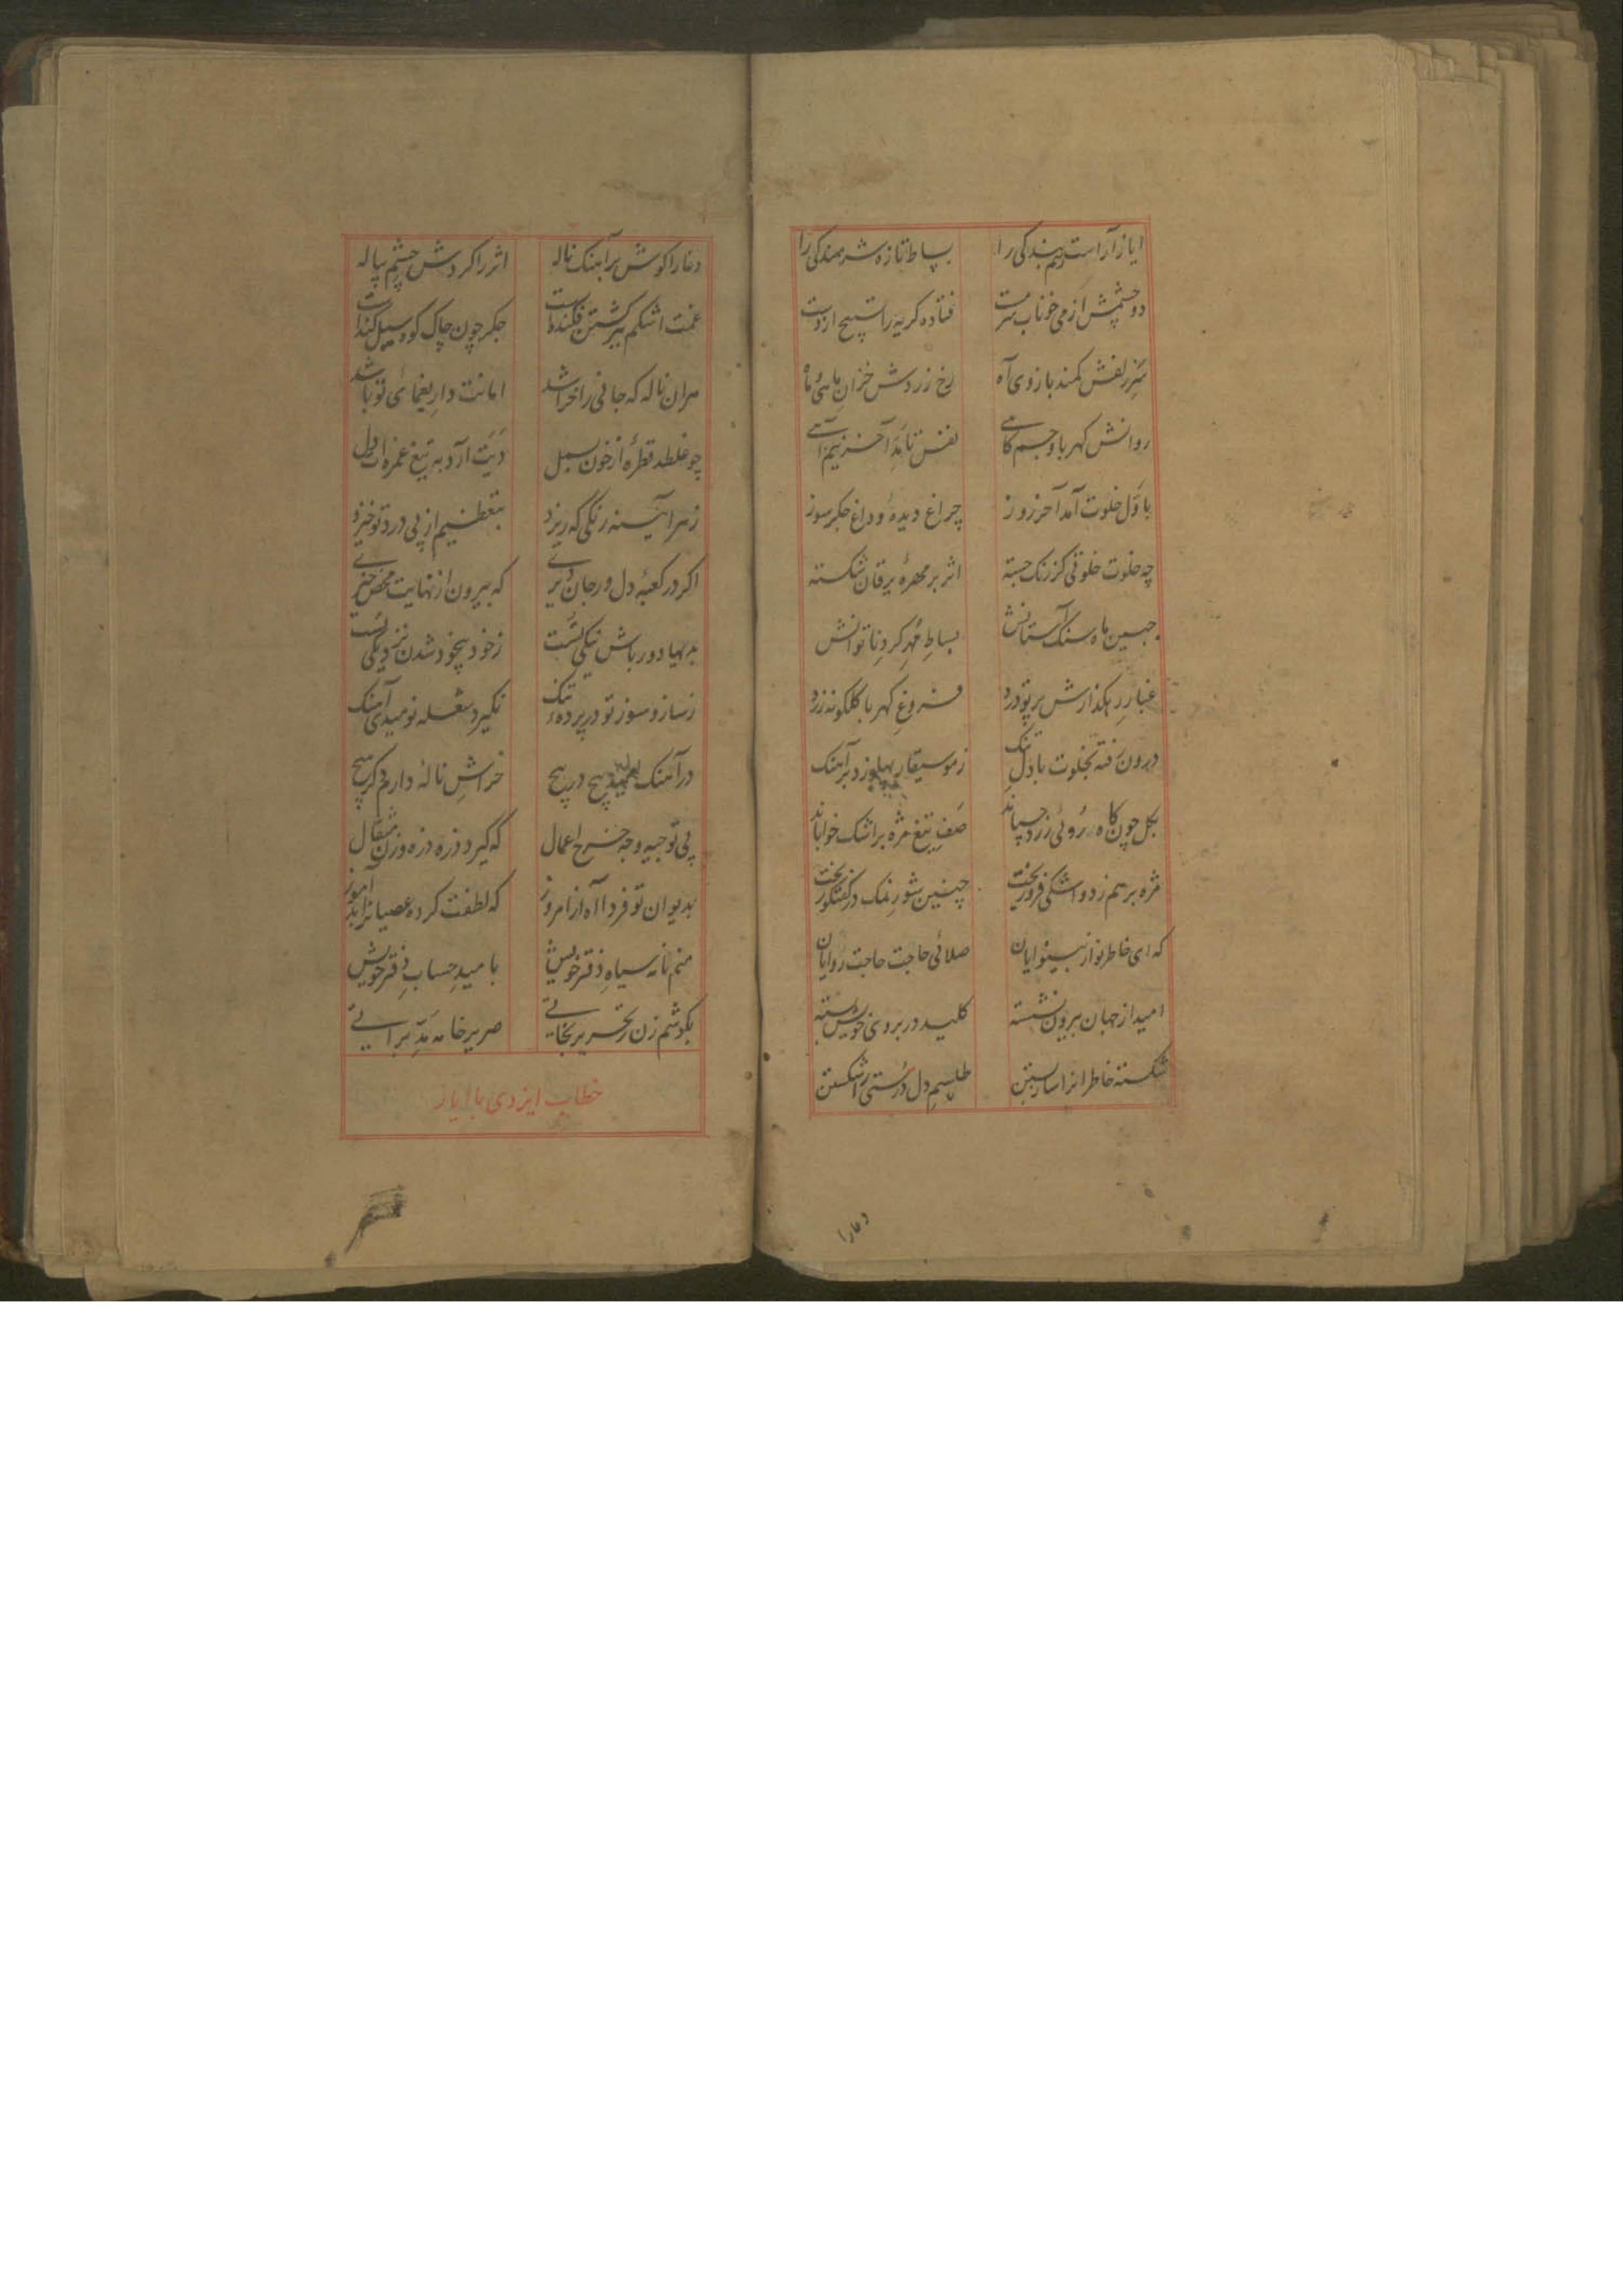 ایاز آراست بزم بندگی را بساط تازه شرمندگی را
دو چشمش از می خوناب سرمست فتاده کریه را تسبیح از دست
سر زلفش کمند بازوی آه رخ زردش خزان ماهی و ماه
روانش کهربا و جسم کاهی نفس تا بد آخر نیم آهی
باول خلوت آمد آخر روز چراغ دیده و داغ جکر سوز
چه خلوت خلوتی کز رنک جسته اثر بر مهره یرقان شکسته
جبین ماه سنک آستانش بساط مهر کرد ناتوانش
غبار رهکذارش پرتو درد فروغ کهربا کلکونه زرد
درون رفته بخلوت با دل تنک ز موسیقار پهلو زد بر آهنک
بکل چون کاه روئی زرد چسپاند صف تیغ مژه بر اشک خواباند
مژه بر هم زد و اشکی فرو ریخت چنین شور نمک در کفتکو ریخت
که ای خاطر نواز بینوایان صلائی حاجت حاجت روایان
امید از جهان بیرون نشسته کلید در بروی خویش بسته
شکسته خاطرانرا ساز بستن طلسم دل درستی را شکستن
دعا را
دعا را کوش بر آهنک ناله اثر را کردش چشم پیاله
غمت اشکم ببر کشتن فکنده است جکر چون چاک کود سیل کنده است
مران ناله که جانی را خراشد امانت دار یغمای تو باشد
چو غلطد قطره از خون بسمل دیت آرد به تیغ غمزه ات دل
ز هر آیینه رنکی که ریزد بتعظیم از پی درد تو خیزد
اکر در کعبه دل ور جان دیری که بیرون از نهایت محض خیری
بدیها دور باش نیکی تست ز خود بیخود شدن نزدیکی تست
ز ساز و سوز تو در پرده تنک نکیرد شعله نومیدی آهنک
در آهنک پیچ در پیچ خراش ناله دارم دکر هیچ
پی توجیه وجه خرج اعمال که کیرد ذره ذره وزن مثقال
بدیوان تو فردا آه از امروز که لطفت کرده عصیانرا بدآموز
منم نامه سیاه دفتر خویش بامید حساب دفتر خویش
بکوشم زن تحریر نجاتی صریر خامه مد براتی
خطاب ایزدی با ایاز